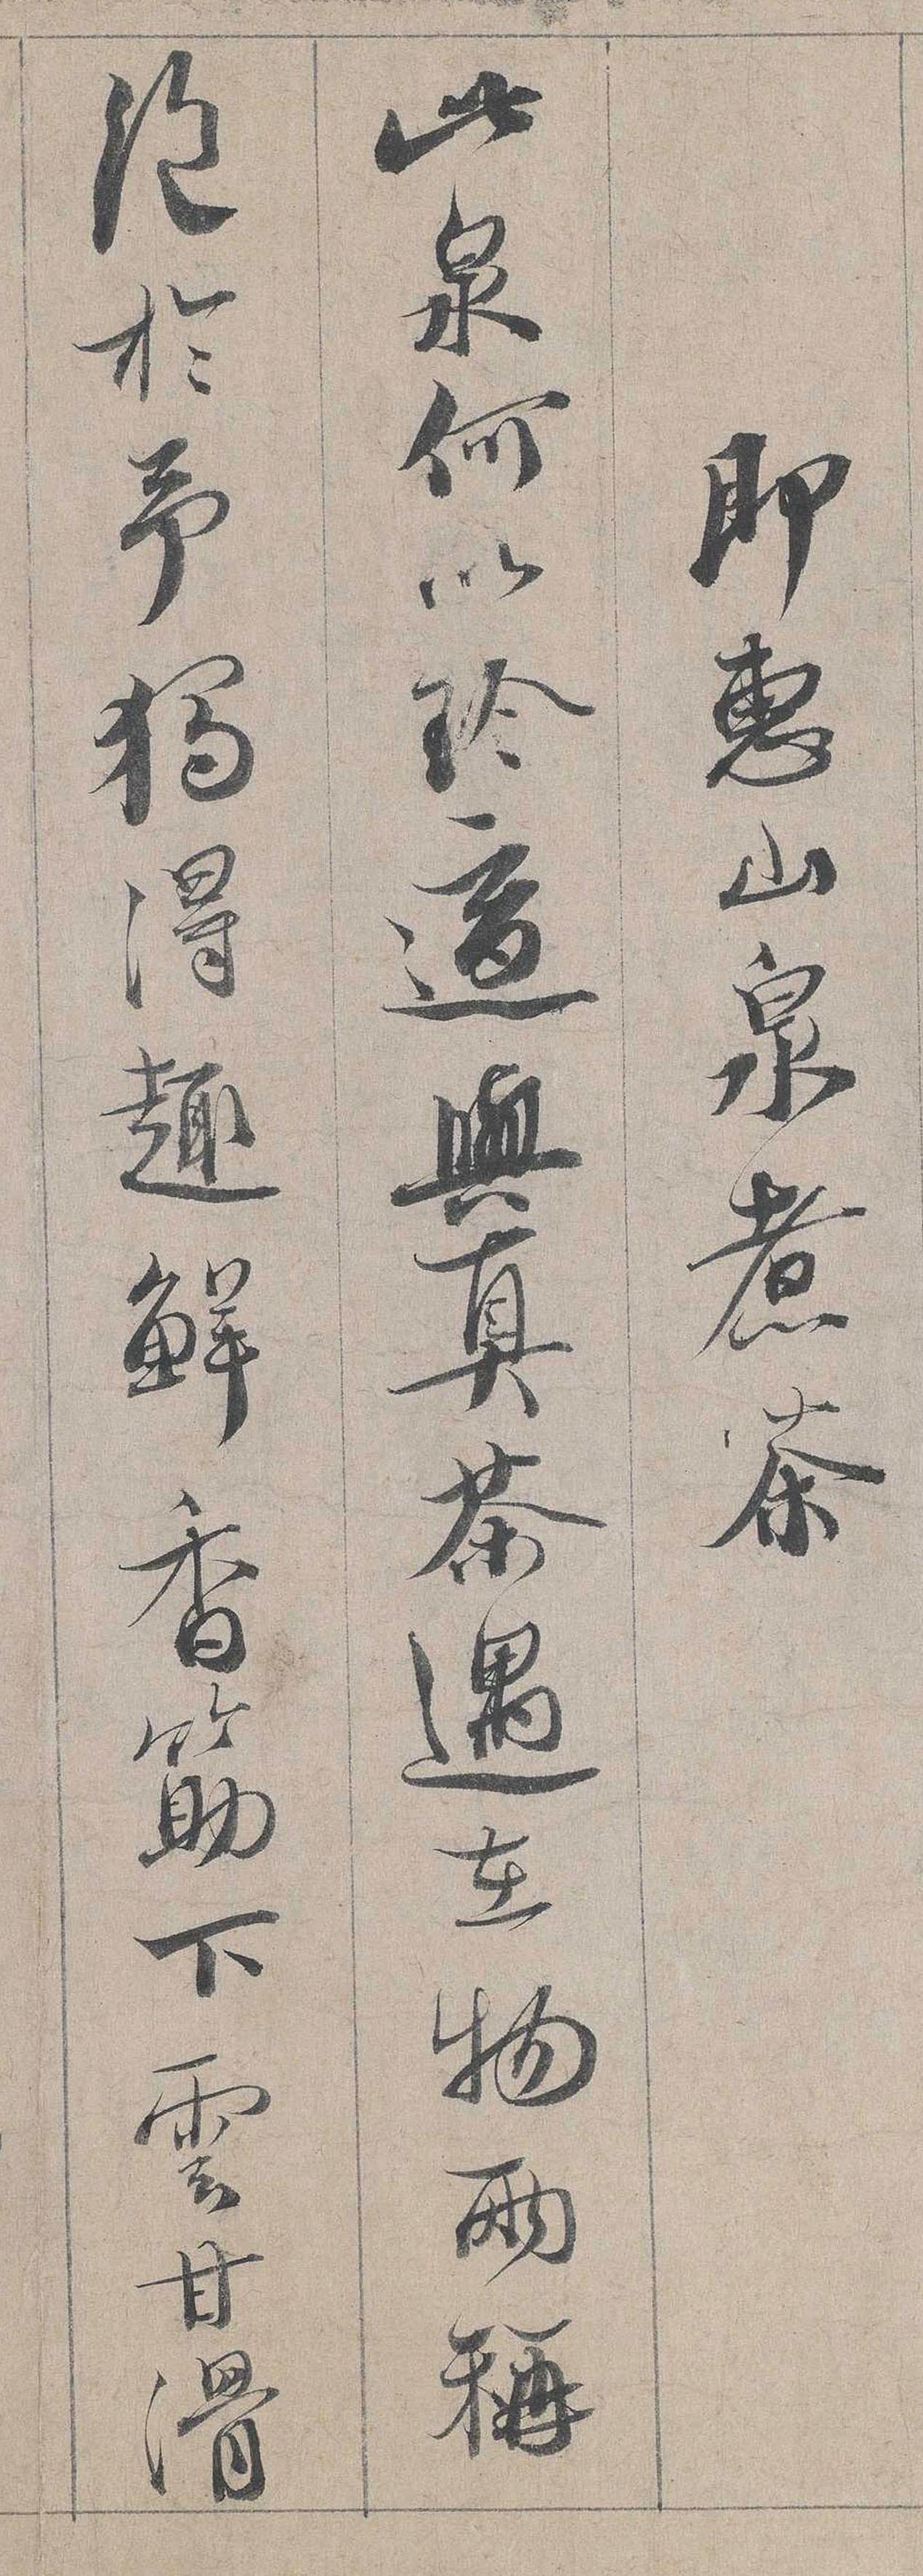 即惠山泉煮茶
此泉何以珍適與真茶遇在物兩稱
絕於予獨得趣鮮香箸下雲甘滑